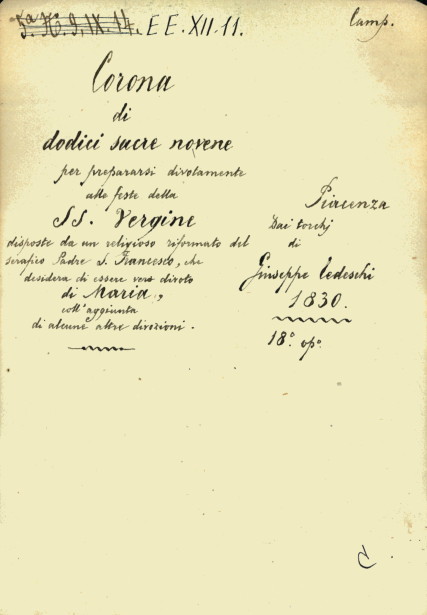 5ª H. 9. IX. 14. E E. XII. 11.
Camp.
Corona
di
dodici sacre novene
per prepararsi divotamente
alle feste della
SS. Vergine
disposte da un religioso riformato del
serafico Padre S. Francesco, che
desidera di essere vero divoto
di Maria,
coll' aggiunta
di alcune altre divozioni.
Piacenza
Dai torchj
di
Giuseppe Tedeschi
1830.
18.° op.°